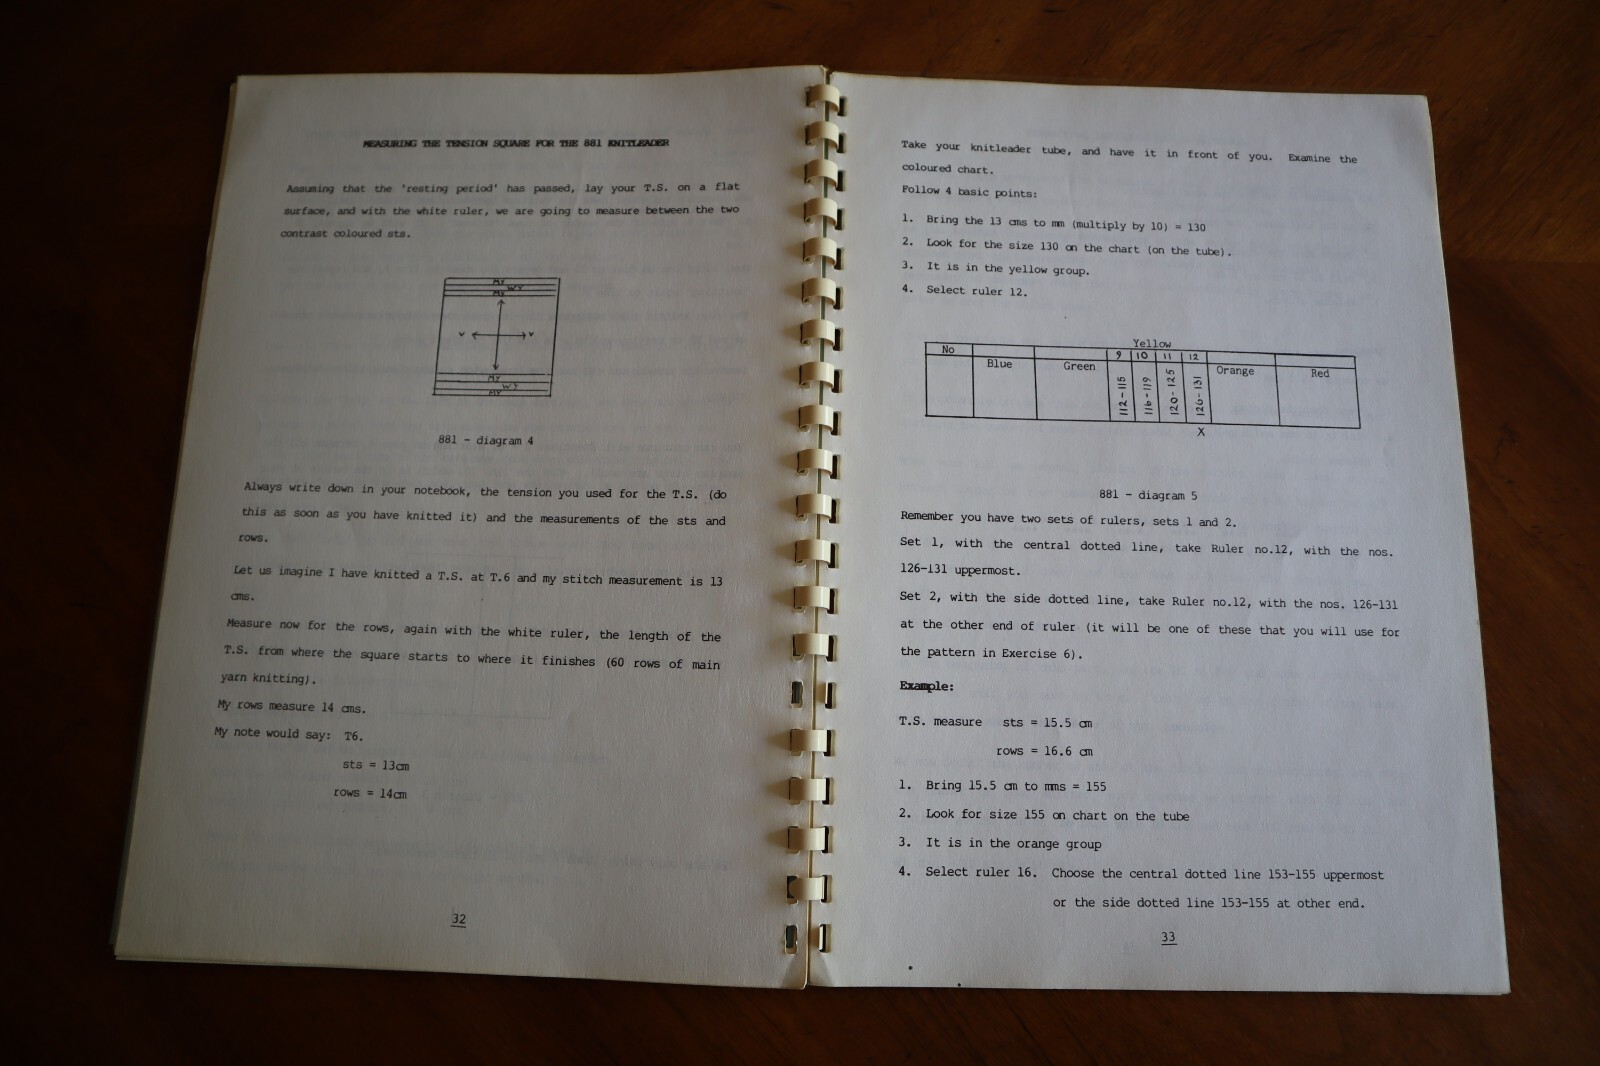 MEASURING THE TENSION SQUARE FOR THE 881 KNITLEADER
Assuming that the 'resting period' has passed, lay your T.S. on a flat
surface, and with the white ruler, we are going to measure between the two
contrast coloured sts.
MY
WY
MY
v v
MY
WY
MY
881 - diagram 4
Always write down in your notebook, the tension you used for the T.S. (do
this as soon as you have knitted it) and the measurements of the sts and
rows.
Let us imagine I have knitted a T.S. at T.6 and my stitch measurement is 13
cms.
Measure now for the rows, again with the white ruler, the length of the
T.S. from where the square starts to where it finishes (60 rows of main
yarn knitting).
My rows measure 14 cms.
My note would say: T6.
sts = 13cm
rows = 14cm
32
Take your knitleader tube, and have it in front of you. Examine the
coloured chart.
Follow 4 basic points:
1. Bring the 13 cms to mm (multiply by 10) = 130
2. Look for the size 130 on the chart (on the tube).
3. It is in the yellow group.
4. Select ruler 12.
Yellow
No 9 10 11 12
Blue Green Orange Red
112-115 116-119 120-125 126-131
X
881 - diagram 5
Remember you have two sets of rulers, sets 1 and 2.
Set 1, with the central dotted line, take Ruler no.12, with the nos.
126-131 uppermost.
Set 2, with the side dotted line, take Ruler no.12, with the nos. 126-131
at the other end of ruler (it will be one of these that you will use for
the pattern in Exercise 6).
Example:
T.S. measure sts = 15.5 cm
rows = 16.6 cm
1. Bring 15.5 cm to mms = 155
2. Look for size 155 on chart on the tube
3. It is in the orange group
4. Select ruler 16. Choose the central dotted line 153-155 uppermost
or the side dotted line 153-155 at other end.
33